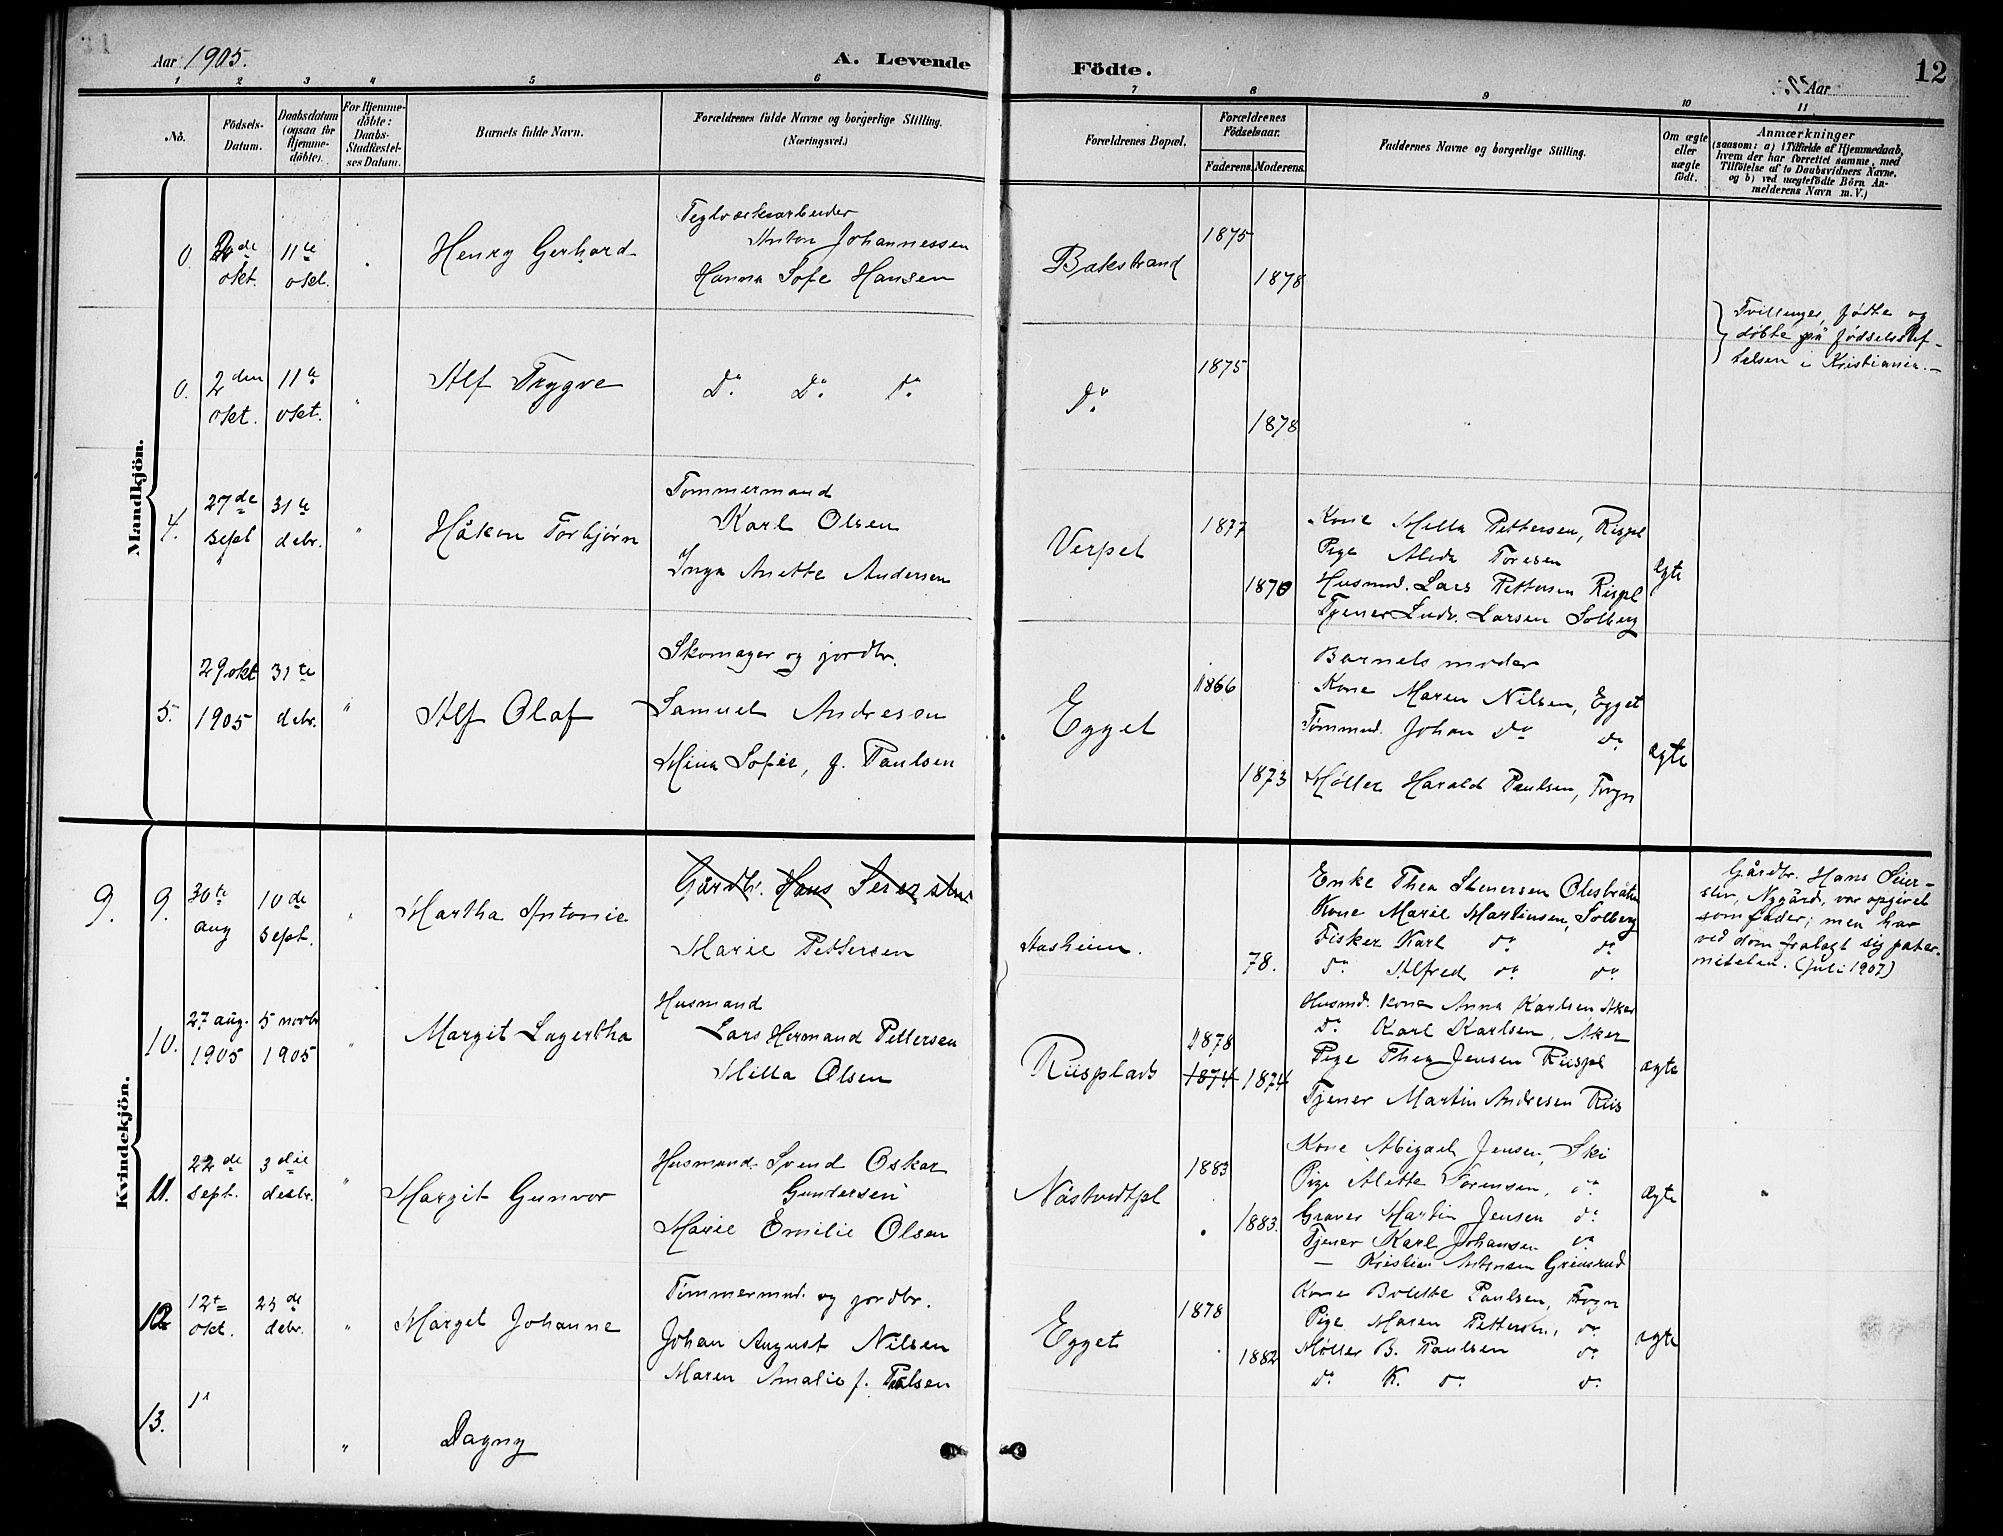 Aar 1905. A. Levende Födte. Aar 12
1 2 3 4 5 6 7 8 9 10 11
No. Födsels-Datum. Daabsdatum (ogsaa for Hjemme-døbte). For Hjemme-döbte: Daabs-Stadfæstel-ses Datum. Barnets fulde Navn. Forældrenes fulde Navne og borgerlige Stilling. (Næringsvei.) Forældrenes Bopæl. Forældrenes Födselsaar. Faderens. Moderens. Faddernes Navne og borgerlige Stilling. Om ægte eller uægte födt. Anmærkninger (saasom: a) i Tilfælde af Hjemmedaab, hvem der har forrettet samme, med Tilföielse af to Daabsvidners Navne. og b) ved uægtefödte Börn An-melderens Navn m. V.)
Mandkjön.
0. 2den okt. 11te okt. Henry Gerhard
Teglværksarbeider
Anton Johannessen
Hanna Sofe Hansen
Bakstrand 1875 1878
Tvillinger, fødte og
døbte på fødselsstif-
telsen i Kristiania.
0. 2den okt. 11te okt. " Alf Trygve Do. Do. Do. Do. 1875 1878
4. 27de sept 31te debr. " Håkon Torbjørn
Tømmermand
Karl Olsen
Inga Anette Andersen
Verpet 1877 1870
Kone Milla Pettersen, Rispl
Pige Alida Toresen
Husmd. Lars Pettersen Rispl
Tjener Ludv. Larsen Solberg
ægte
5. 29 okt 1905 31te debr. " Alf Olaf
Skomager og jordbr.
Samuel Andresen
Mina Sofie, f. Paulsen
Egget 1866 1873
Barnets moder
Kone Maren Nilsen, Egget
Tømmmd. Johan do do.
Møller Harald Paulsen, Frogn
ægte
Kvindekjön.
9. 9. 30te aug 10de sept. " Martha Antonie
Gårdbr. Hans
Marie Pettersen
Aasheim. 78.
Enke Thea Stenersen Olesbråten
Kone Marie Martinsen, Solberg
Fisker Karl do. do.
do. Alfred do. do.
Gårdbr. Hans Seier-
sten, Nygård, var opgivet
som fader; men har
ved dom fralagt sig pater-
niteten. (juli 1907)
10. 27 aug. 1905 5 novbr 1905 " Margit Lagertha
Husmand
Lars Hermand Pettersen
Milla Olsen
Riisplads 1878 1874 1874
Husmd. kone Anna Karlsen, Aker
do. Karl Karlsen, Aker
Pige Thea Jensen Riispl
Tjener Martin Andresen Riis
ægte
11. 22de sept. 3die desbr. " Margit Gunvor
Husmand Svend Oskar
Gundersen
Marie Emilie Olsen
Nåstvedtpl 1883 1883.
Kone Abigael Jensen, Ski
Pige Alette Sørensen, do.
Graver Martin Jensen do.
Tjener Karl Johansen do.
— Kristian Antonsen Grønsrud
ægte "
12. 12t okt. 23de debr. " Marget Johanne
Tømmermnd. og jordbr.
Johan August Nilsen
Maren Amalie f. Paulsen
Egget 1878 1882
Kone Bolette Paulsen, Frogn
Pige Maren Pettersen, do.
Møller B. Paulsen do.
do. K. do. do.
ægte
13. " Dagny